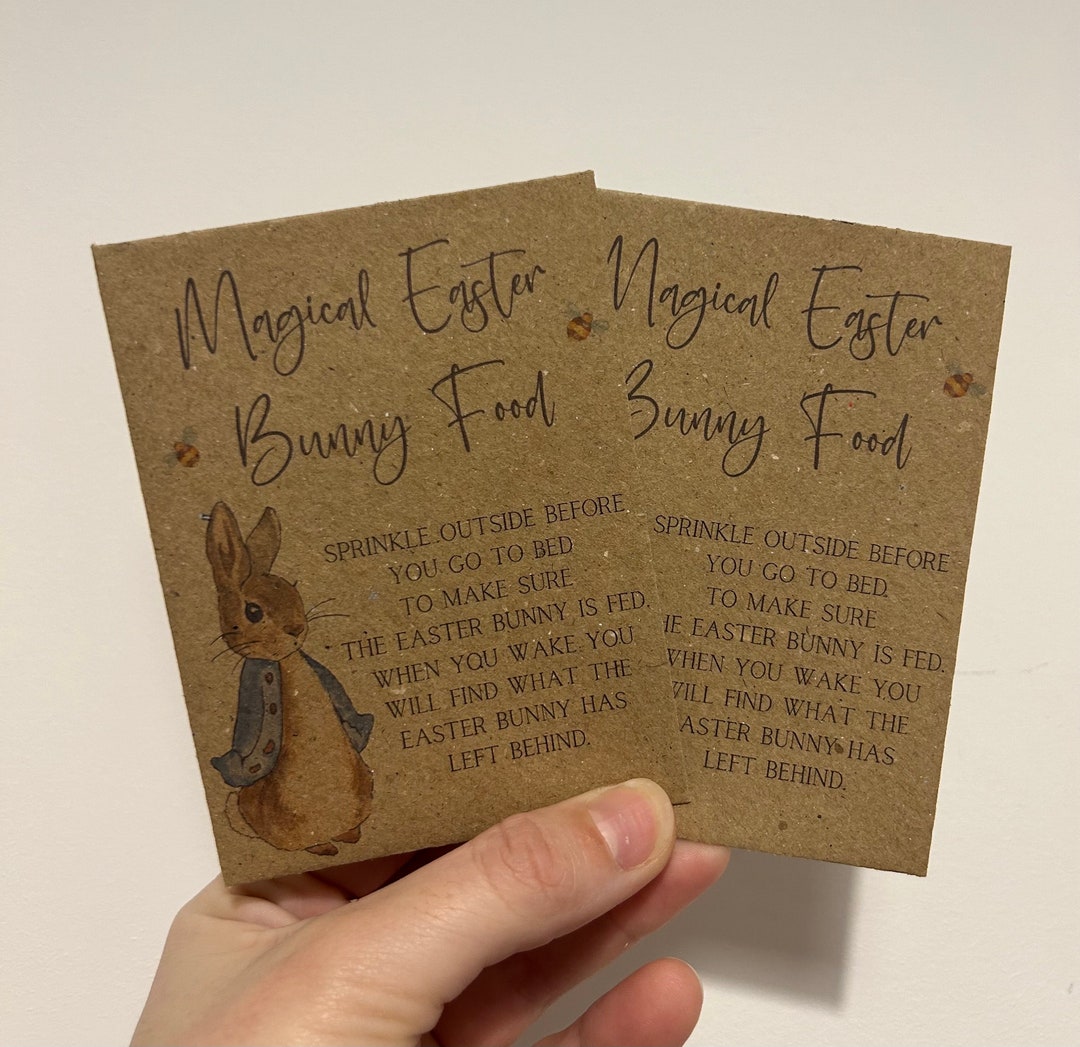 Magical Easter
Bunny Food
SPRINKLE OUTSIDE BEFORE
YOU GO TO BED
TO MAKE SURE
THE EASTER BUNNY IS FED.
WHEN YOU WAKE YOU
WILL FIND WHAT THE
EASTER BUNNY HAS
LEFT BEHIND.
Magical Easter
Bunny Food
SPRINKLE OUTSIDE BEFORE
YOU GO TO BED
TO MAKE SURE
HE EASTER BUNNY IS FED.
WHEN YOU WAKE YOU
WILL FIND WHAT THE
ASTER BUNNY HAS
LEFT BEHIND.